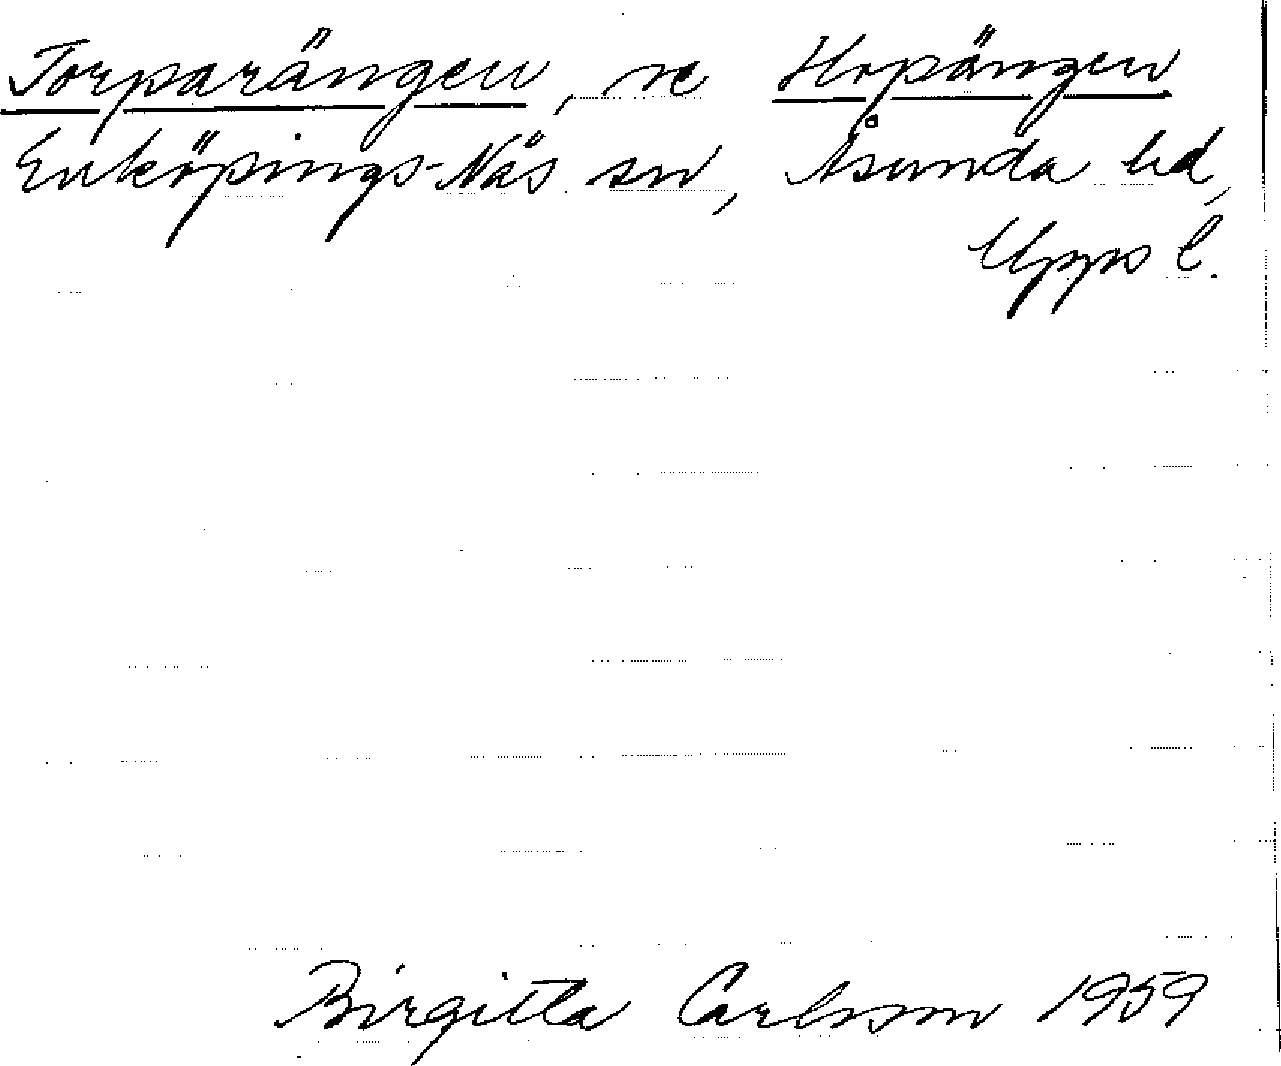 Torparängen, se Hopängen
Enköpings-Näs sn, Åsunda hd,
Upps l.
Birgitta Carlsson 1959